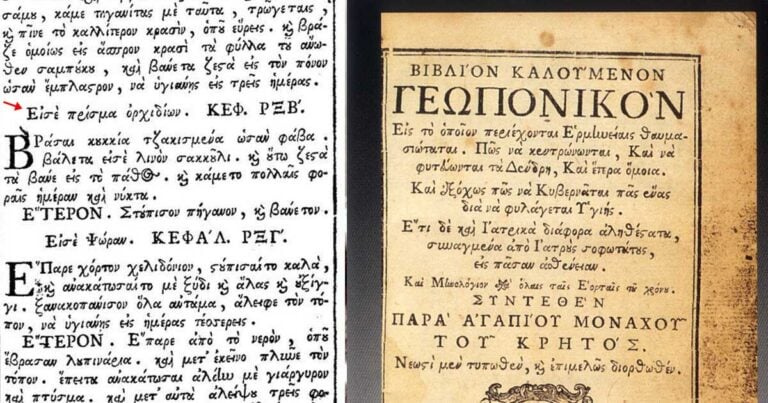 σάμυ, κάμε τηγανίταις μὲ ταῦτα, τρώγεταις,
κ̀ πῖνε τὸ καλλίτερον κρασὶν, ὁποῦ εὕρεις. κ̀ βρά-
ζε ὁμοίως εἰς ἄσπρον κρασὶ τὰ φύλλα τοῦ ἄνω-
θεν σαμπούκου, καὶ βάνετα ζεςὰ εἰς τὸν πόνον
ὡσὰν ἔμπλαςρον, νὰ ὑγιάνῃς εἰς τρεῖς ἡμέρας.
Εἰσὲ πρίσμα ὀρχιδίων. ΚΕΦ. ΡΞΒ'.
ΒΡάσαι κυκκία τζακισμένα ὡσὰν φάβα.
βάλετα εἰσὲ λινὸν σακκοῦλι. κ̀ ὅτω ζεςὰ
τὰ βάνε εἰς τὸ πάθος. κ̀ κάμετο πολλαῖς φο-
ραῖς ἡμέραν καὶ νύκτα.
ΕΤΕΡΟΝ. Στύπισον πήγανον, κ̀ βάνετον.
Εἰσὲ Ψώραν. ΚΕΦΑΛ. ΡΞΓ'.
ΕΠαρε χόρτον χελιδόνιον, ςύπισαίτο καλὰ,
κ̀ ἀνακάτωσαίτο μὲ ξύδι κ̀ ἅλας κ̀ ὀξίγ-
γι. ξανακοπάνισον ὅλα αὐτωμα, ἄλειφε τὸν τό-
πον, νὰ ὑγιάνῃς εἰς ἡμέρας τέσσερεις.
ΕΤΕΡΟΝ. Ἔπαρε ἀπὸ τὸ νερὸν, ὁπῦ
ἔβρασαν λυπινάρια. καὶ μετ' ἐκεῖνο πλῦνε τὸν
τόπον. ἔπειτα ἀνακάτωσαι ἀλάτι μὲ γιάργυρον
καὶ πτύσμα. καὶ μετ' αὐτὰ ἀλείψου τρεῖς φο-
ΒΙΒΛΙΟΝ ΚΑΛΟΥΜΕΝΟΝ
ΓΕΩΠΟΝΙΚΟΝ
Εἰς τὸ ὁποῖον περιέχονται Ἑρμηνείαις θαυμα-
σιώταται. Πῶς νὰ κεντρώνωνται, Καὶ νὰ
φυτεύωνται τὰ Δένδρη, Καὶ ἕτερα ὅμοια.
Καὶ ἐξόχως πῶς νὰ Κυβερνᾶται πᾶς ἕνας
διὰ νὰ φυλάγεται Ὑγιής.
Ἔτι δὲ καὶ Ἰατρικὰ διάφορα ἀληθέςατα,
συναγμένα ἀπὸ Ἰατροὺς σοφωτάτυς,
εἰς πᾶσαν ἀσθένειαν.
Καὶ Μηνολόγιον μὲ ὅλαις ταῖς Ἑορταῖς τῦ χρόνυ.
ΣΥΝΤΕΘΕΝ
ΠΑΡΑ ΑΓΑΠΙΟΥ ΜΟΝΑΧΟΥ
ΤΟΥ ΚΡΗΤΟΣ.
Νεωςὶ μὲν τυπωθὲν, κ̀ ἐπιμελῶς διορθωθέν.